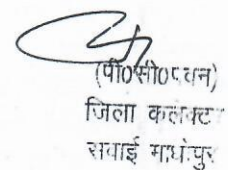 (पी०सी०पवन)
जिला कलक्टर
सवाई माधोपुर